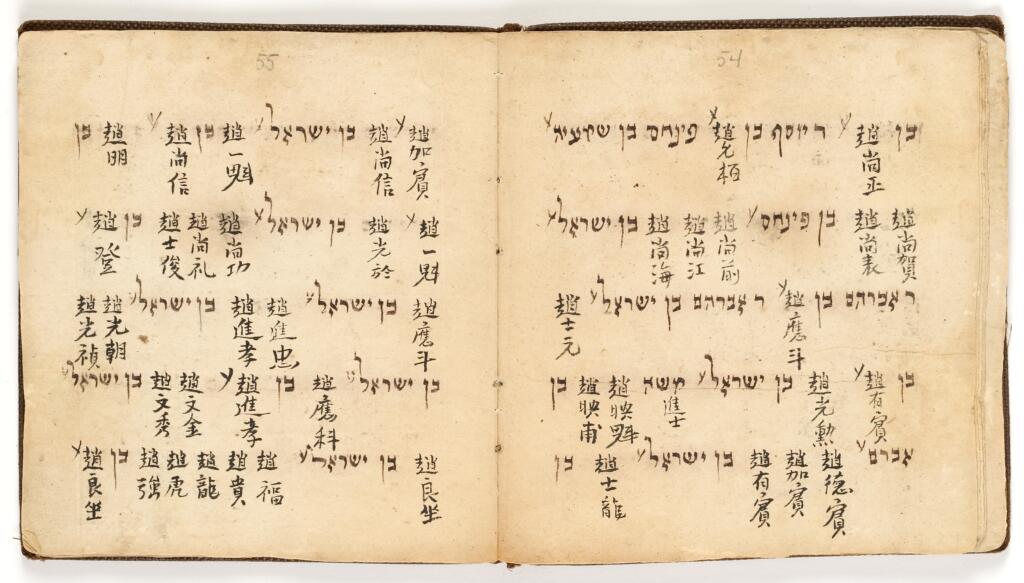 54
בן 趙尚正 ר יוסף בן 趙允栢 פינחס בן שמעיה
趙尚賀 趙尚表 בן פינחס 趙尚前 趙尚江 趙尚海 בן ישראל
ר אברהם בן 趙應斗 ר אברהם בן ישראל 趙士元
בן 趙有賓 趙光勲 בן ישראל משה 進士 趙映魁 趙映甫 בן
אברם 趙德賓 趙加賓 趙有賓 בן ישראל 趙士龍 בן
55
趙加賓 趙尚信 בן ישראל 趙一魁 בן 趙尚信 趙明 בן
趙一魁 趙光於 בן ישראל 趙尚功 趙尚礼 趙士俊 בן 趙登
趙應斗 בן ישראל 趙進忠 趙進孝 בן ישראל 趙光朝 趙光禎
בן ישראל 趙應科 בן 趙進孝 趙文金 趙文秀 בן ישראל
趙良坐 בן ישראל 趙福 趙貴 趙龍 趙虎 趙強 בן 趙良坐